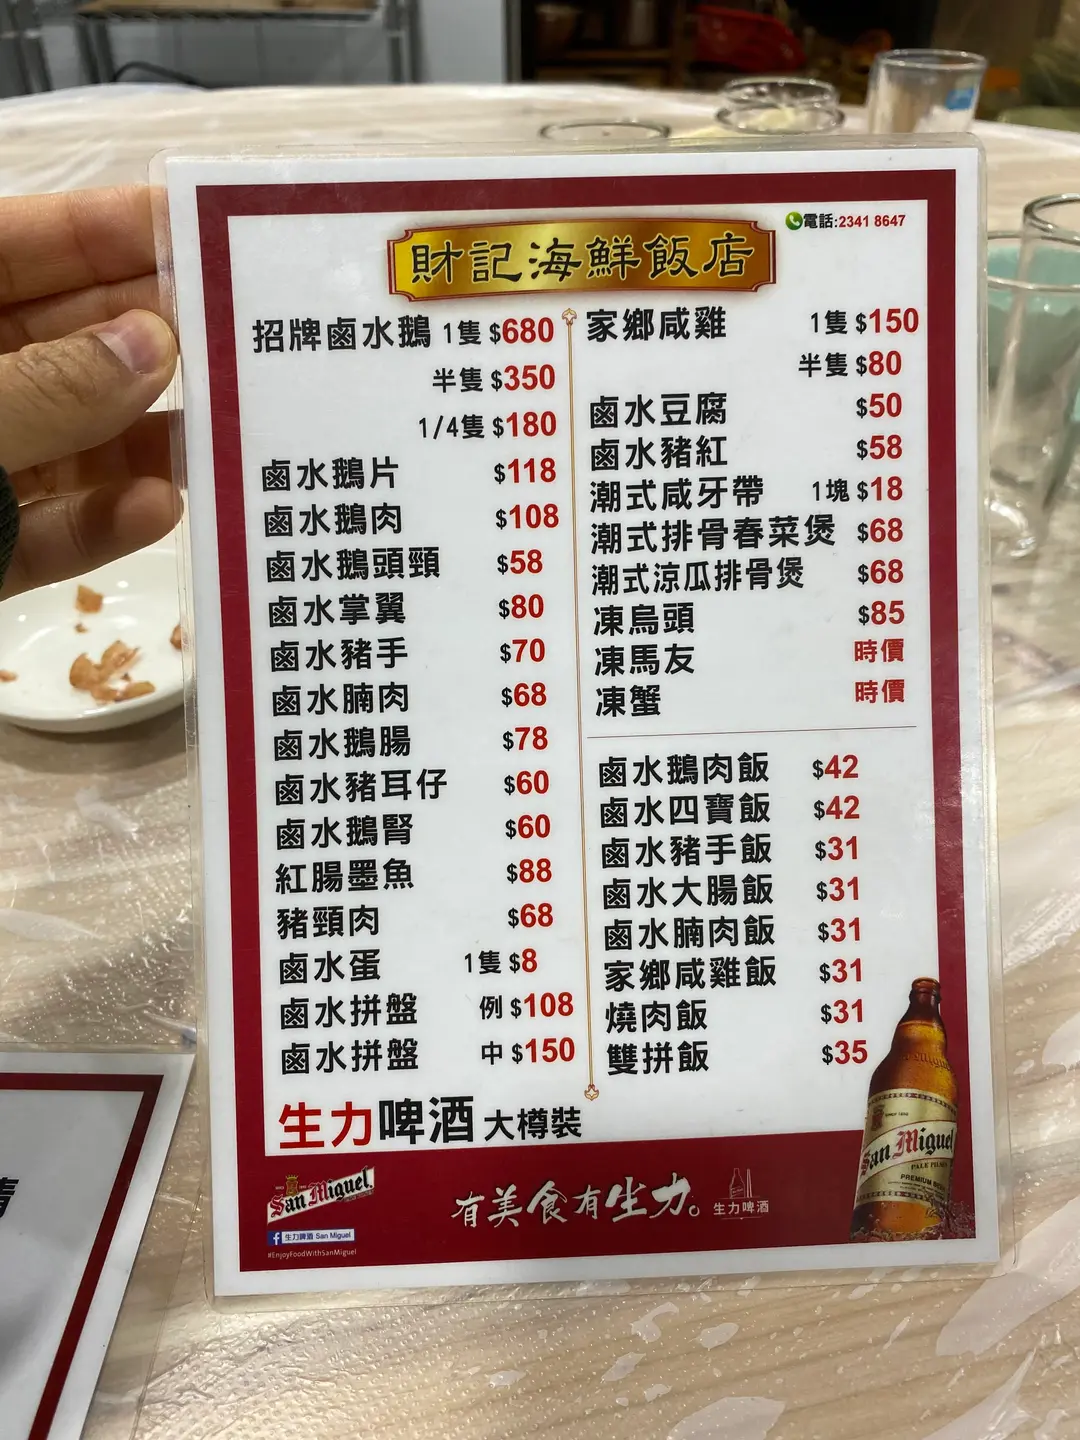 電話:2341 8647
財記海鮮飯店
招牌鹵水鵝 1隻 $680
半隻 $350
1/4隻 $180
鹵水鵝片 $118
鹵水鵝肉 $108
鹵水鵝頭頸 $58
鹵水掌翼 $80
鹵水豬手 $70
鹵水腩肉 $68
鹵水鵝腸 $78
鹵水豬耳仔 $60
鹵水鵝腎 $60
紅腸墨魚 $88
豬頸肉 $68
鹵水蛋 1隻 $8
鹵水拼盤 例 $108
鹵水拼盤 中 $150
家鄉咸雞 1隻 $150
半隻 $80
鹵水豆腐 $50
鹵水豬紅 $58
潮式咸牙帶 1塊 $18
潮式排骨春菜煲 $68
潮式涼瓜排骨煲 $68
凍烏頭 $85
凍馬友 時價
凍蟹 時價
鹵水鵝肉飯 $42
鹵水四寶飯 $42
鹵水豬手飯 $31
鹵水大腸飯 $31
鹵水腩肉飯 $31
家鄉咸雞飯 $31
燒肉飯 $31
雙拼飯 $35
生力啤酒 大樽裝
San Miguel
生力啤酒 San Miguel
#EnjoyFoodWithSanMiguel
有美食有生力。
生力啤酒
San Miguel
PALE PILSEN
PREMIUM BEER